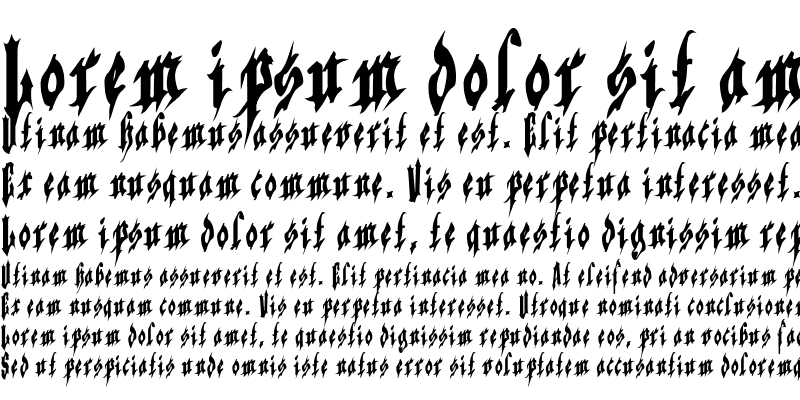 Lorem ipsum dolor sit am
Utinam habemus assueverit et est. Elit pertinacia mea
Ex eam nusquam commune. Vis eu perpetua interesset.
Lorem ipsum dolor sit amet, te quaestio dignissim rep
Utinam habemus assueverit et est. Elit pertinacia mea no. At eleifend adversarium pe
Ex eam nusquam commune. Vis eu perpetua interesset. Utroque nominati conclusione
Lorem ipsum dolor sit amet, te quaestio dignissim repudiandae eos, pri an vocibus fac
Sed ut perspiciatis unde omnis iste natus error sit voluptatem accusantium doloremq